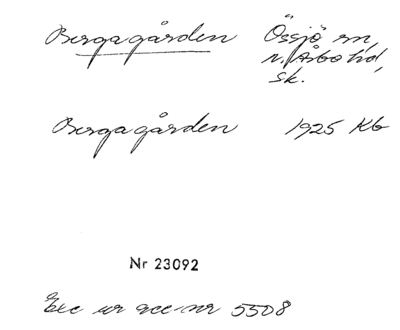 Bergagården Össjö sn,
n. Åsbo hd,
sk.
Bergagården 1925 Kb
Nr 23092
Exc ur acc-nr 5508